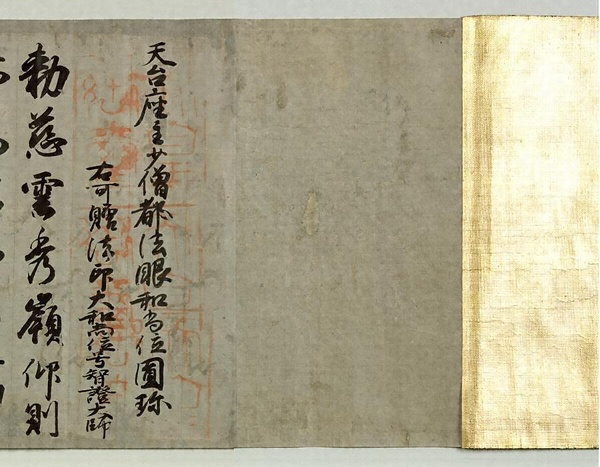 天台座主少僧都法眼和尚位圓珎
右可贈法印大和尚位号智證大師
勅慈雲秀嶺仰則